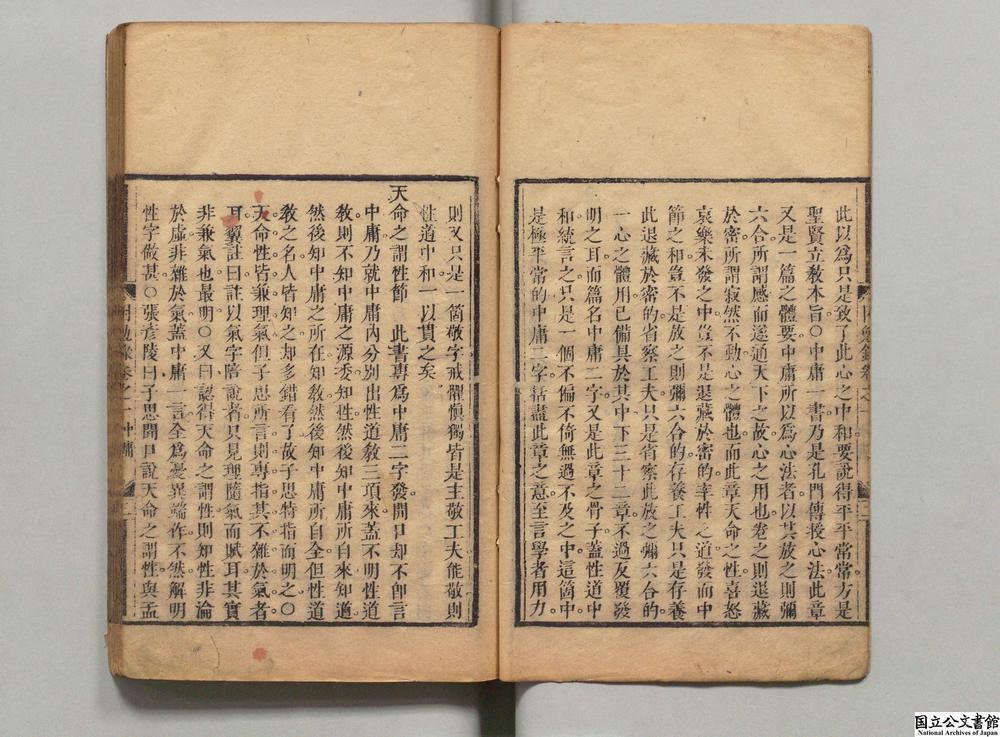 此以爲只是致了此心之中和要說得平平常常方是
聖賢立敎本旨〇中庸一書乃是孔門傳授心法此章
又是一篇之體要中庸所以爲心法者以其放之則彌
六合所謂感而遂通天下之故心之用也卷之則退藏
於密所謂寂然不動心之體也而此章天命之性喜怒
哀樂未發之中豈不是退藏於密的率性之道發而中
節之和豈不是放之則彌六合的存養工夫只是存養
此退藏於密的省察工夫只是省察此放之彌六合的
一心之體用已備具於其中下三十二章不過反覆發
明之耳而篇名中庸二字又是此章之骨子蓋性道中
和統言之只是一個不偏不倚無過不及之中這箇中
是極平常的中庸二字括盡此章之意至言學者用力
則又只是一箇敬字戒懼愼獨皆是主敬工夫能敬則
性道中和一以貫之矣
天命之謂性節 此書專爲中庸二字發開口却不卽言
中庸乃就中庸內分別出性道敎三項來蓋不明性道
敎則不知中庸之源委知性然後知中庸所自來知道
然後知中庸之所在知敎然後知中庸所自全但性道
敎之名人皆知之却多錯看了故子思特指而明之〇
天命性皆兼理氣但子思所言則專指其不雜於氣者
耳翼註曰註以氣字陪說者只見理隨氣而賦耳其實
非兼氣也最明〇又曰認得天命之謂性則知性非淪
於虛非雜於氣蓋中庸一言全爲憂異端作不然解明
性字做甚〇張彥陵曰子思開口說天命之謂性與孟
困勉錄卷之一 中庸 二
国立公文書館
National Archives of Japan